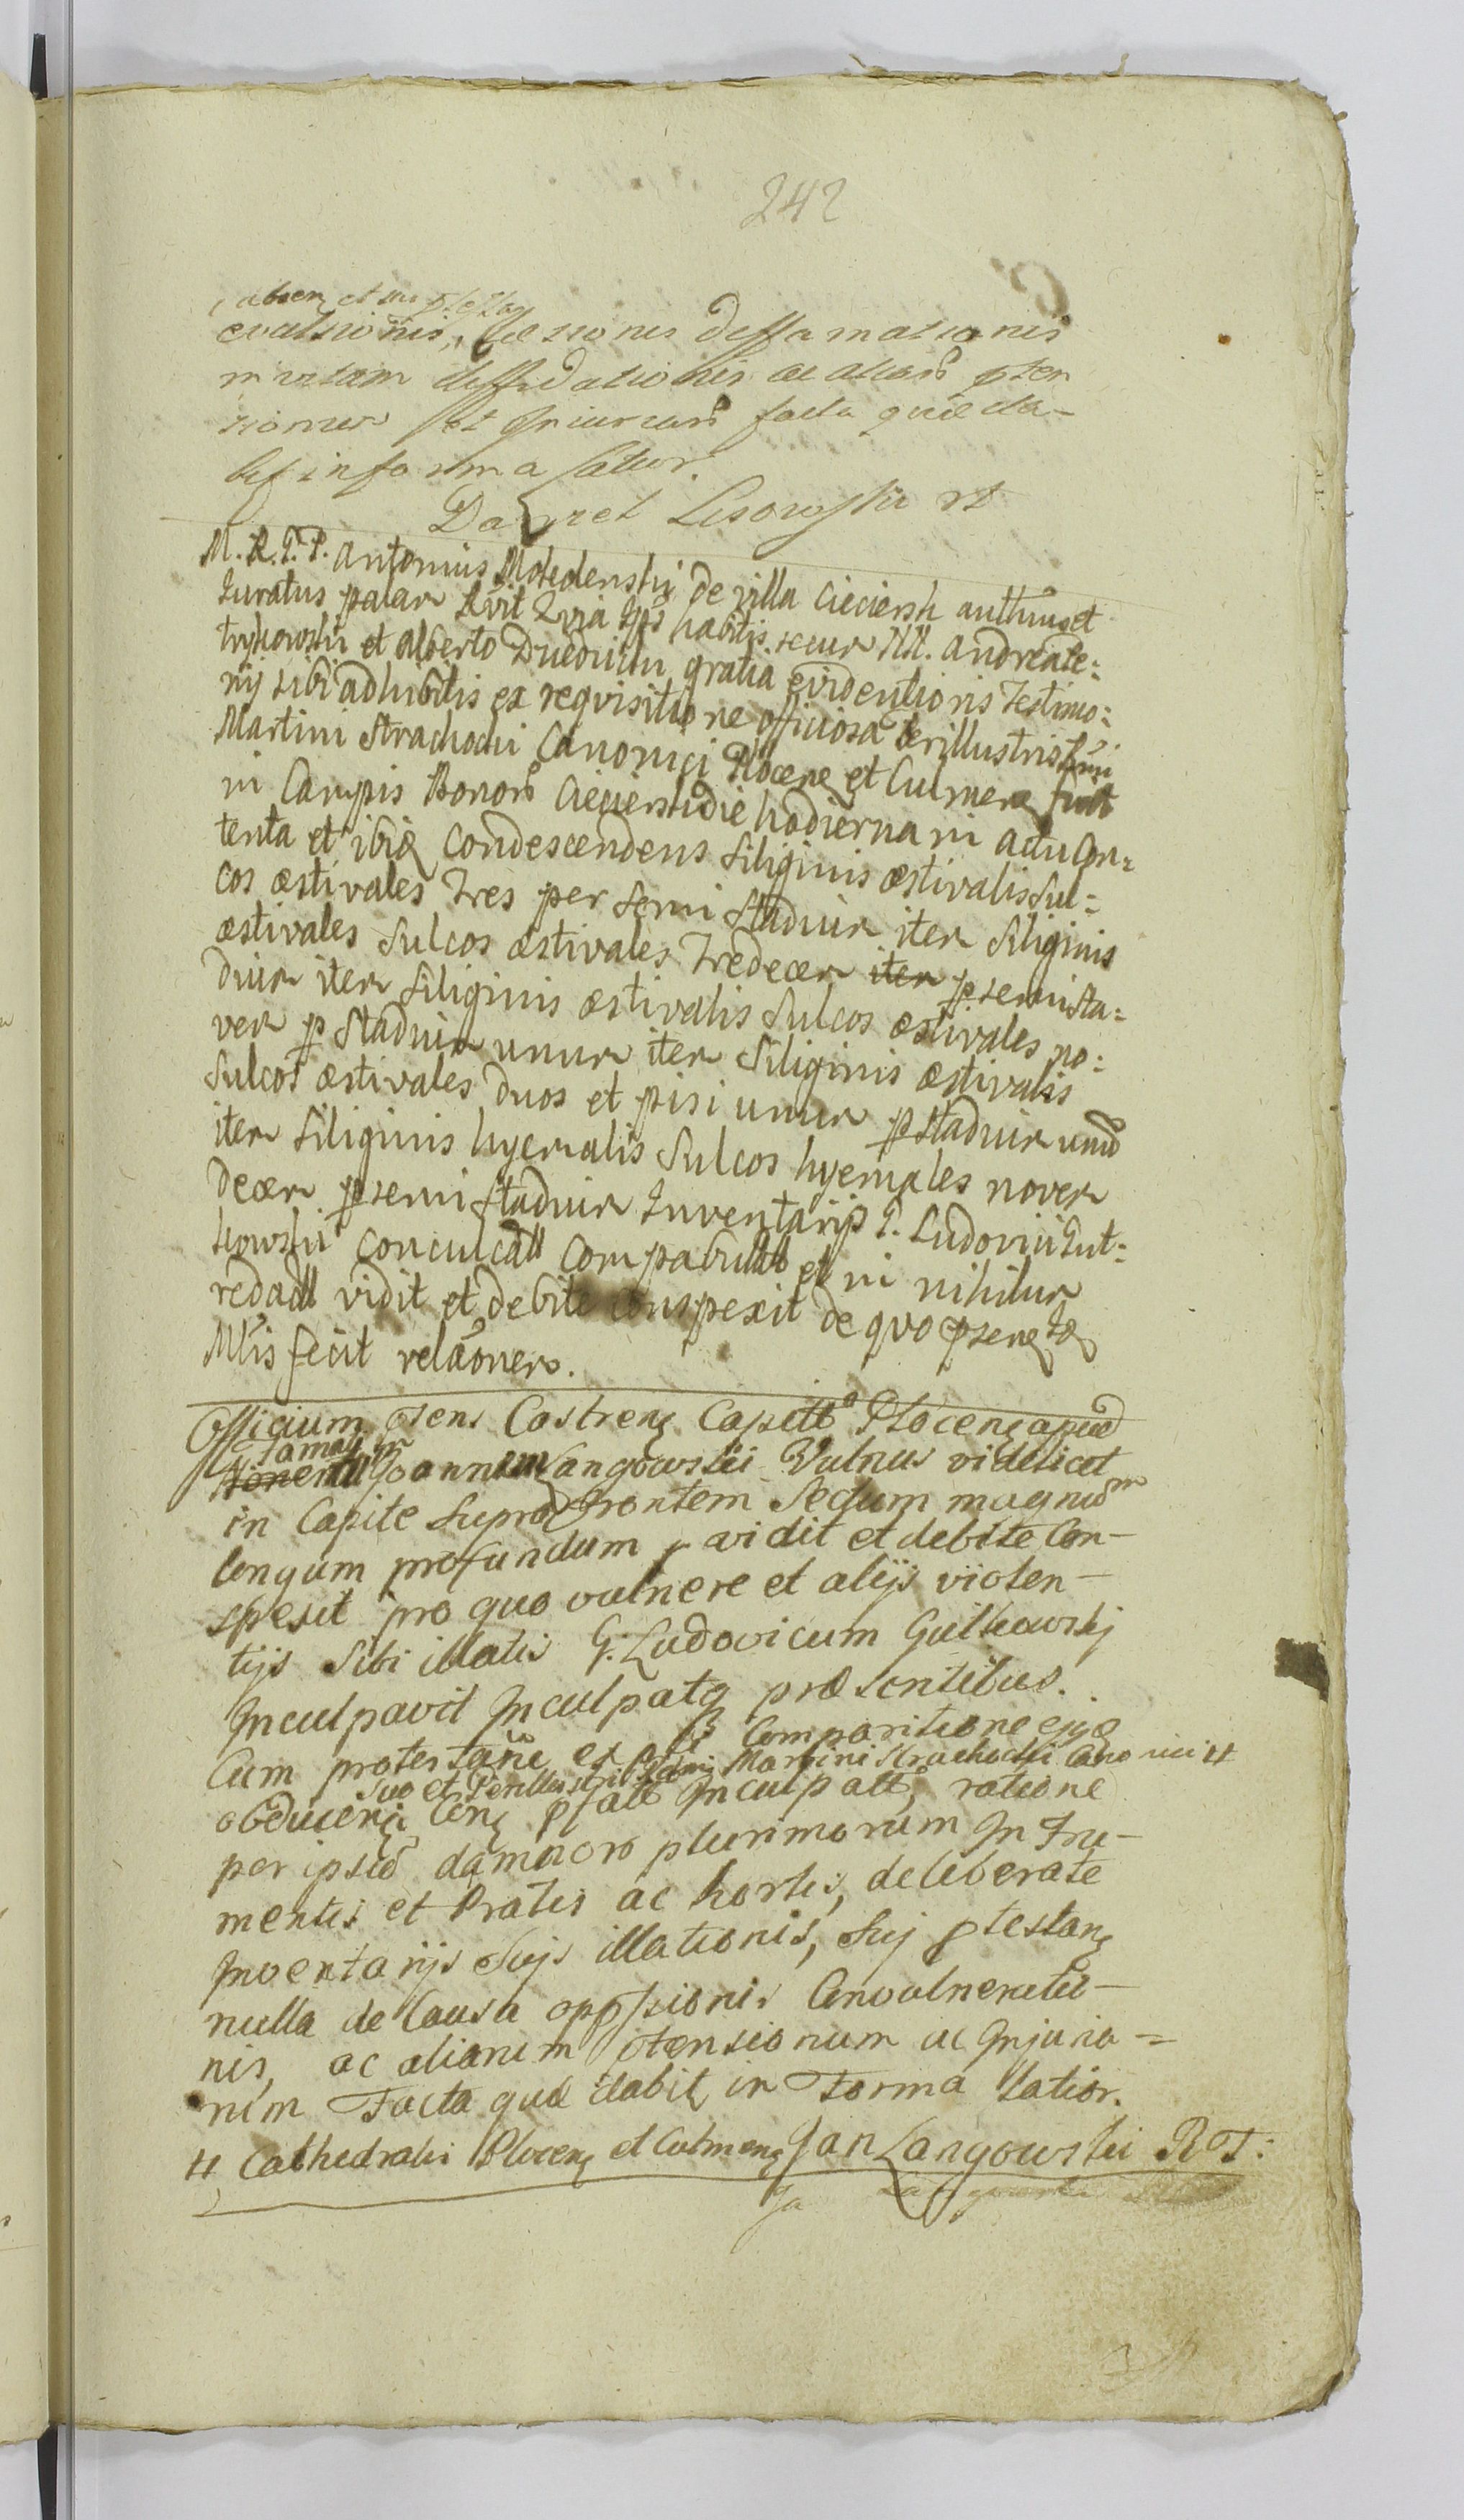 242
evulsionis, læsionis deffamationis
in vitam diffidationis ac aliarũ pten
sionum et Injuriarũ facta quæ da-
bit in forma latior.
Daniel Lisowski
M. R. T. P. Antonius Modedenski de villa Cieciersk authũs et
Juratus palam
trykowski et Alberto gratia evidentioris Testimo:
nij sibi adhibitis ex requisitione officiosa Perillustris
Martini Strachocki Canonici Plocen et Culmen fuit
in Campis Bonorũ Ciecierski die hodierna in actu Con:
tenta et ibiq condescendens Siliginis æstivalis sul:
cos æstivales Tres per semi stadium item Siliginis
æstivales Sulcos æstivales Tredecem item p semi sta:
dium item Siliginis æstivalis Sulcos æstivales no:
vem p Stadium unum item Siliginis æstivalis
Sulcos æstivales duos et pisi unum p stadium unũ
item Siliginis hyemalis Sulcos hyemales novem
decem p semi stadium Inventarijs G. Ludovici Gut:
kowski conculcatt compabulatt et in nihilum
redactt vidit et debite conspexit de quo psene Iõ
Mtis fecit relãonem.
Officium psens Castren Capitt Plocen apud
Famatt Joannem Langowski Vulnus videlicet
in Capite Supra Frontem Sectum magnum
longum profundum vidit et debite Con-
spexit pro quo vulnere et alijs violen-
tijs Sibi illatis G. Ludovicum Gutkowskj
Inculpavit Inculpatq præsentibus.
Cum protestãne ex pte Comparitione ejq
suo et Perillustris Martini Strachocki Canonici #
obducen Con pfatt Inculpatt, ratione
per ipsũ damnorũ plurimorum In Fru-
mentis et Pratis ac hortis, deliberate
Inventarijs Sujs illationis, Suj ptestan
nulla de Causa oppssionis Convulneratio-
nis, ac aliarum ptensionum ac Injuria=
rum Facta quæ dabit in Forma latior.
# Cathedralis Plocen et Culmen Jan Langowski RT: